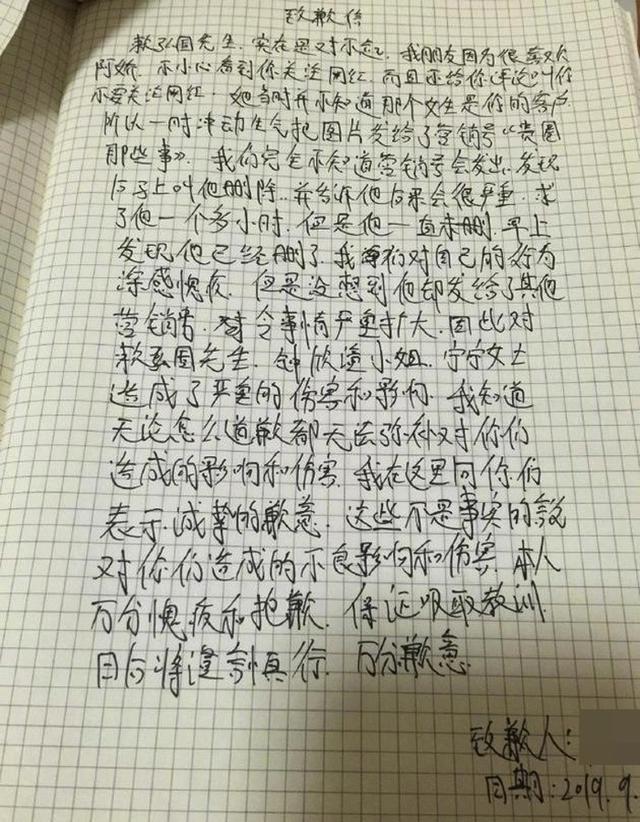 致歉信
赖弘国先生，实在是对不起，我朋友因为很喜欢
阿娇，不小心看到你关注网红，而且还给你评论叫你
不要关注网红，她当时并不知道那个女生是你的客户
所以一时冲动生气把图片发给了营销号“贵圈
那些事”，我们完全不知道营销号会发出，发现
后马上叫他删除，并告诉他后果会很严重，求
了他一个多小时，但是他一直未删，早上
发现他已经删了，我们对自己的行为
深感愧疚，但是没想到他却发给了其他
营销号，令事情严重扩大，因此对
赖弘国先生，钟欣潼小姐，宁宁女士
造成了严重的伤害和影响，我知道
无论怎么道歉都无法弥补对你们
造成的影响和伤害，我在这里向你们
表示诚挚的歉意，这些不是事实的
对你们造成的不良影响和伤害，本人
万分愧疚和抱歉，保证吸取教训
日后将谨言慎行，万分歉意
致歉人：
日期：2019.9.